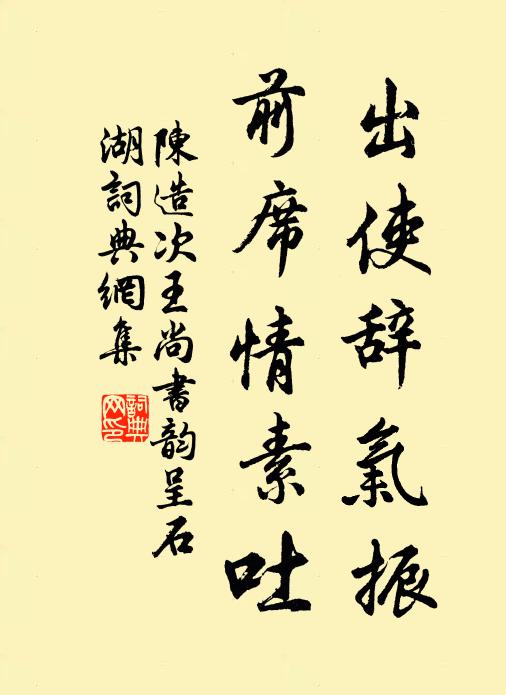 出使辞氣振
前席情素吐
陳造次王尚書韵呈石
湖詞典網集
詞典网印